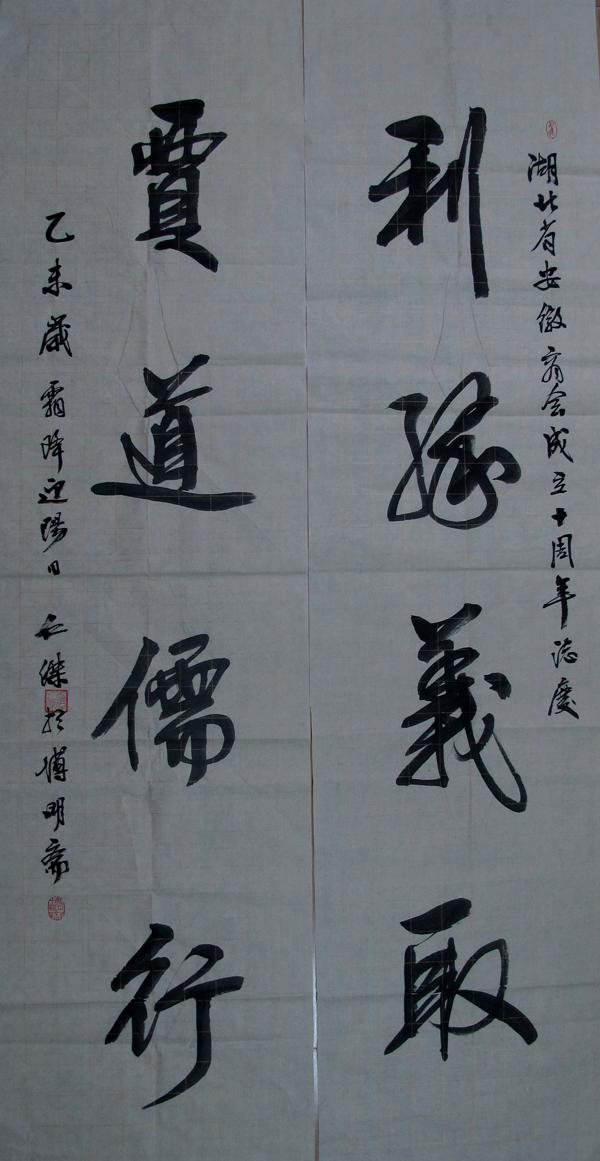 湖北省安徽商会成立十周年誌慶
利緣義取
賈道儒行
乙未歲霜降迎陽日 仁傑於博明齋